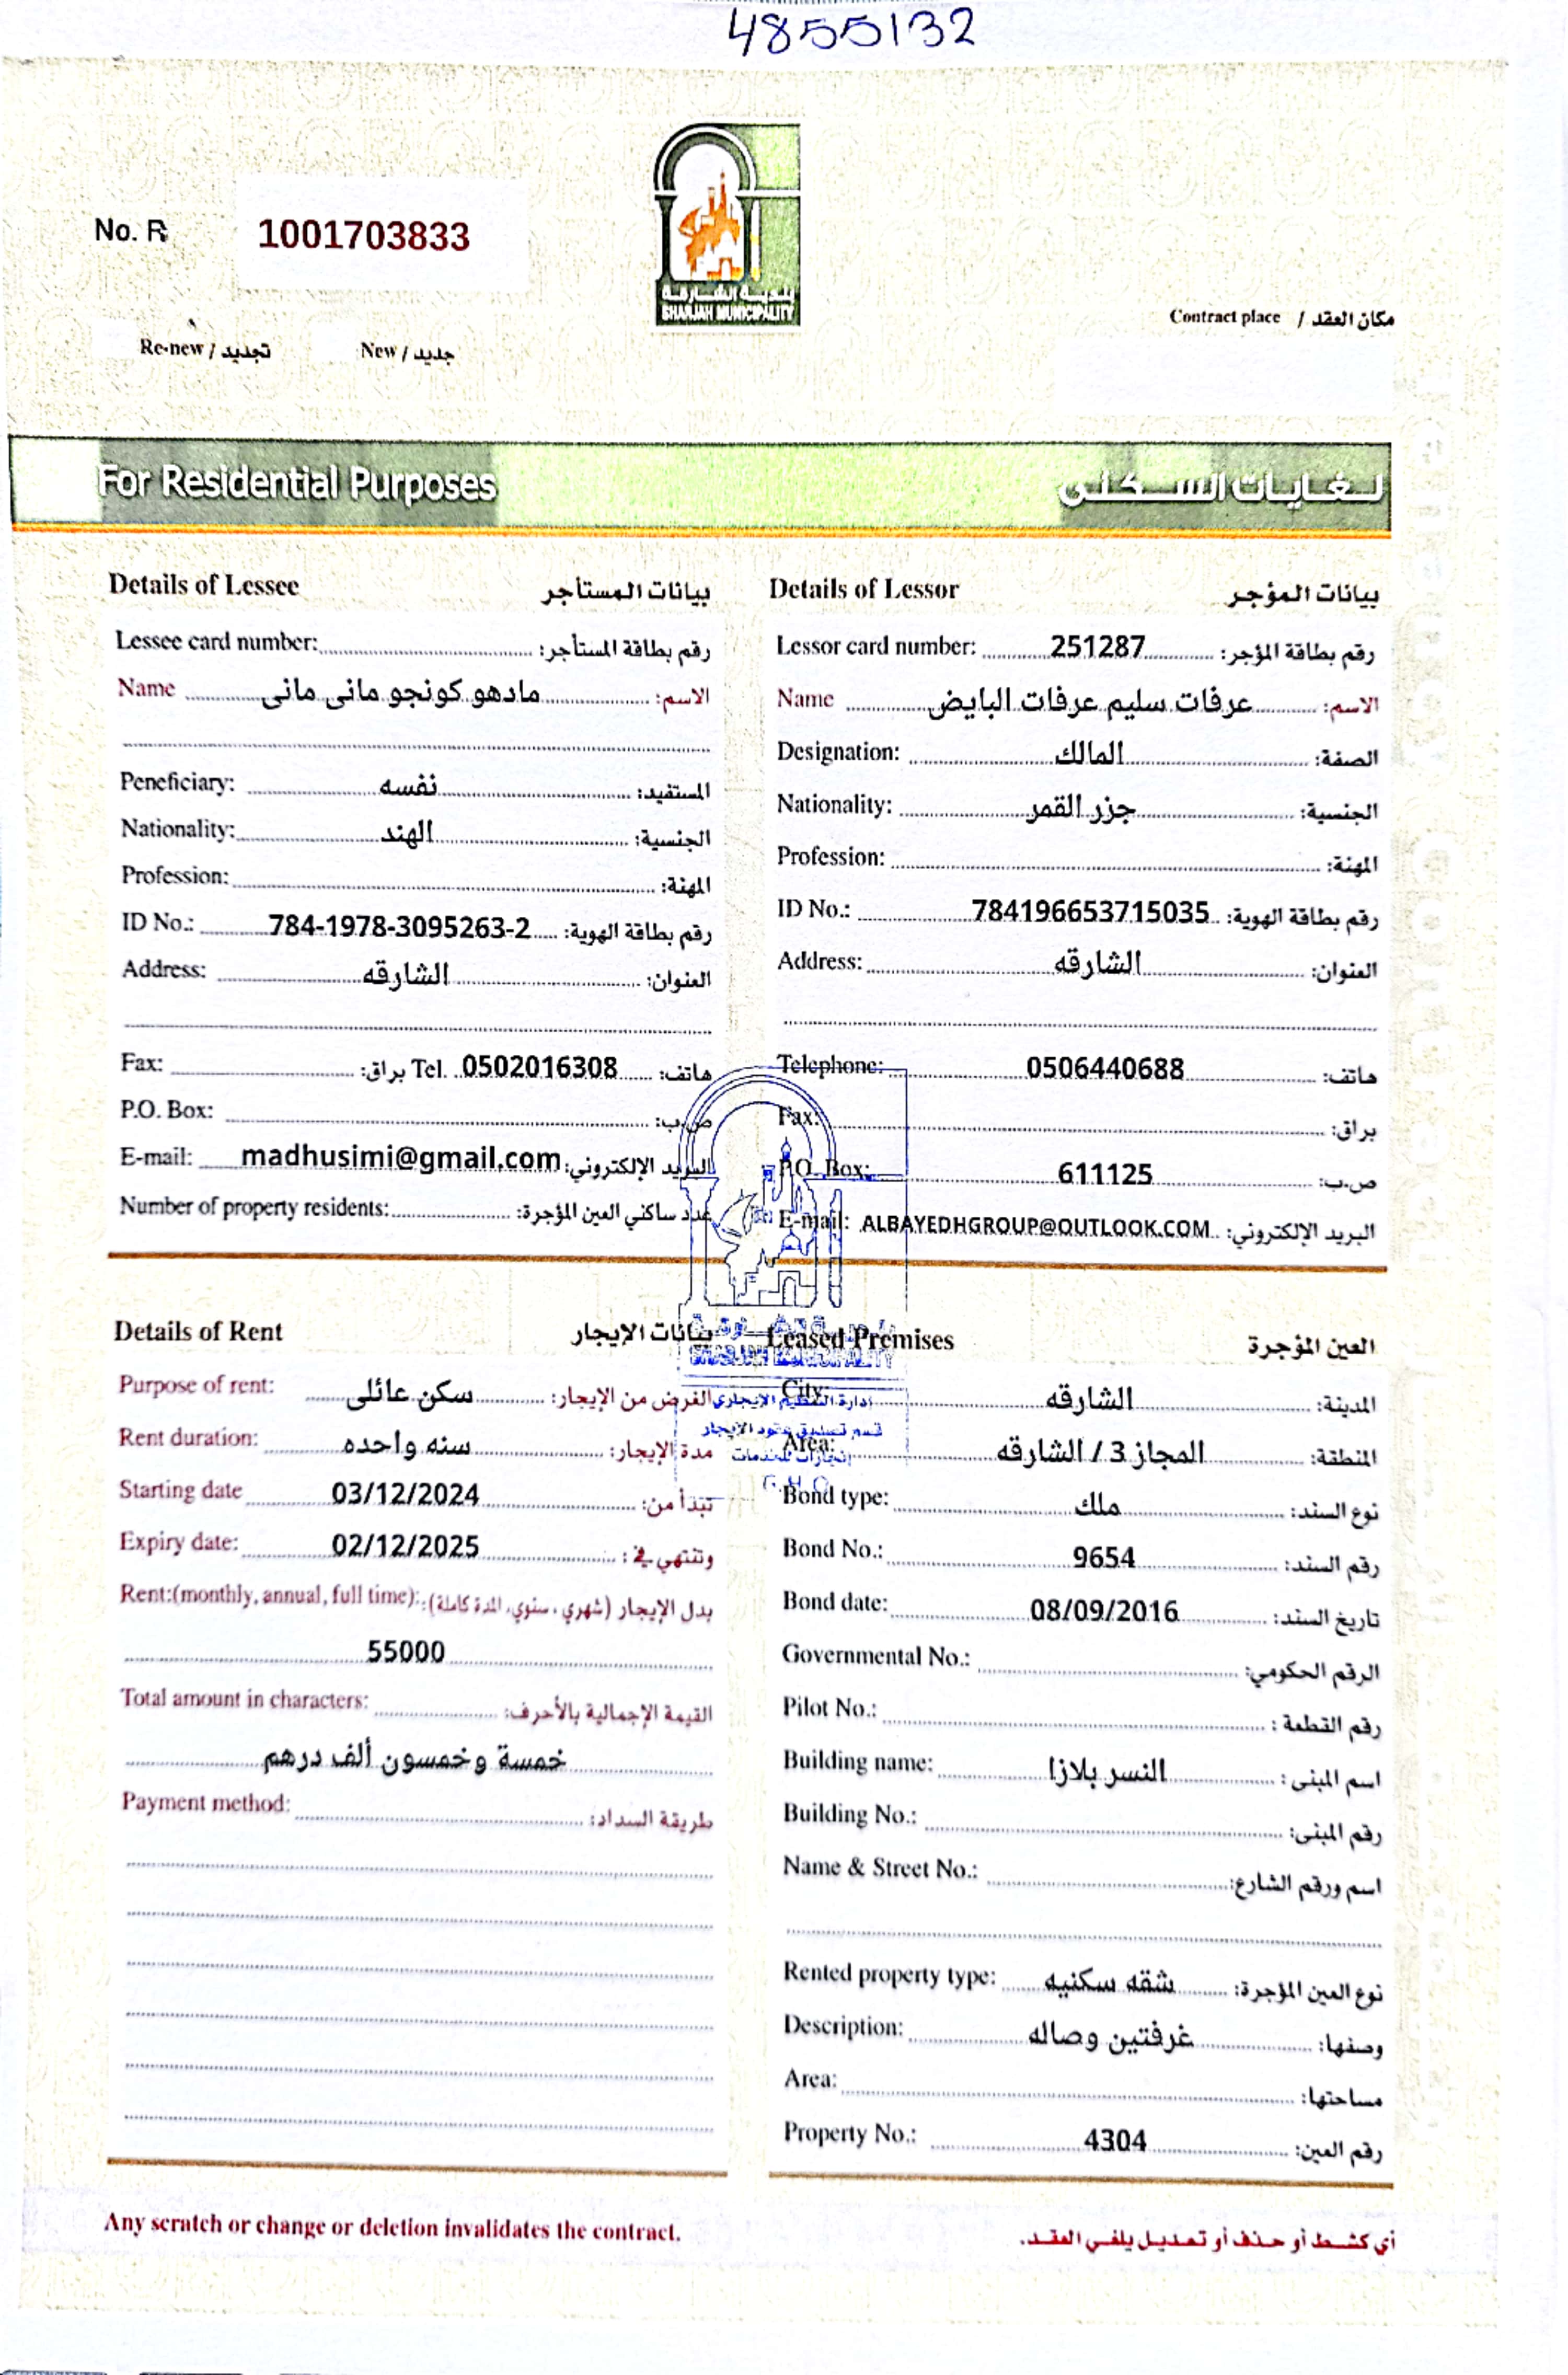 4855132
No. R 1001703833
بلدية الشارقة
SHARJAH MUNICIPALITY
Contract place / مكان العقد
Re-new / تجديد New / جديد
For Residential Purposes لغايات السكنى
Details of Lessee بيانات المستأجر
Lessee card number: رقم بطاقة المستأجر:
Name مادهو كونجو مانى مانى الاسم:
Peneficiary: نفسه المستفيد:
Nationality: الهند الجنسية:
Profession: المهنة:
ID No.: 784-1978-3095263-2 رقم بطاقة الهوية:
Address: الشارقه العنوان:
Fax: براق: Tel. 0502016308 هاتف:
P.O. Box: ص.ب:
E-mail: madhusimi@gmail.com البريد الإلكتروني:
Number of property residents: عدد ساكني العين المؤجرة:
Details of Lessor بيانات المؤجر
Lessor card number: 251287 رقم بطاقة المؤجر:
Name عرفات سليم عرفات البايض الاسم:
Designation: المالك الصفة:
Nationality: جزر القمر الجنسية:
Profession: المهنة:
ID No.: 784196653715035 رقم بطاقة الهوية:
Address: الشارقه العنوان:
Telephone: 0506440688 هاتف:
Fax: براق:
P.O. Box: 611125 ص.ب:
E-mail: ALBAYEDHGROUP@OUTLOOK.COM البريد الإلكتروني:
Details of Rent بيانات الإيجار
Purpose of rent: سكن عائلى الغرض من الإيجار:
Rent duration: سنه واحده مدة الإيجار:
Starting date 03/12/2024 تبدأ من:
Expiry date: 02/12/2025 وتنتهي في:
Rent:(monthly, annual, full time): بدل الإيجار (شهري، سنوي، المدة كاملة):
55000
Total amount in characters: القيمة الإجمالية بالأحرف:
خمسة وخمسون ألف درهم
Payment method: طريقة السداد:
Leased Premises العين المؤجرة
City: الشارقه المدينة:
Area: المجاز 3 / الشارقه المنطقة:
Bond type: ملك نوع السند:
Bond No.: 9654 رقم السند:
Bond date: 08/09/2016 تاريخ السند:
Governmental No.: الرقم الحكومي:
Pilot No.: رقم القطعة :
Building name: النسر بلازا اسم المبنى :
Building No.: رقم المبنى:
Name & Street No.: اسم ورقم الشارع:
Rented property type: شقه سكنيه نوع العين المؤجرة:
Description: غرفتين وصاله وصفها:
Area: مساحتها:
Property No.: 4304 رقم العين:
SHARJAH MUNICIPALITY
إدارة التنظيم الإيجاري
قسم تصديق عقود الإيجار
إنجازات للخدمات
Any scratch or change or deletion invalidates the contract. أي كشط أو حذف أو تعديل يلغي العقد.